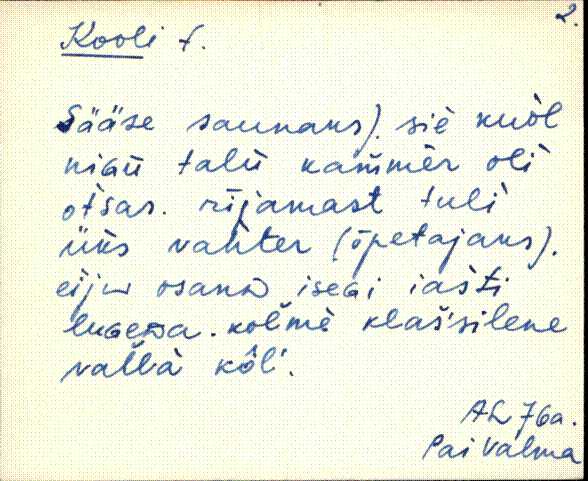 2.
Kooli f.
Sääse saunans). siè kuòl
niɢu̬ talu̬ kam̀mèr oli
ot̀sas. rījamast tuli
ǖks vahter (ȭpetajans).
eijᴜ osanᴅ iseɢi iašti
luɢeᴅa. kol̆mè klaš̀silene
valla kôl'.
AL 76a.
Pai Valma